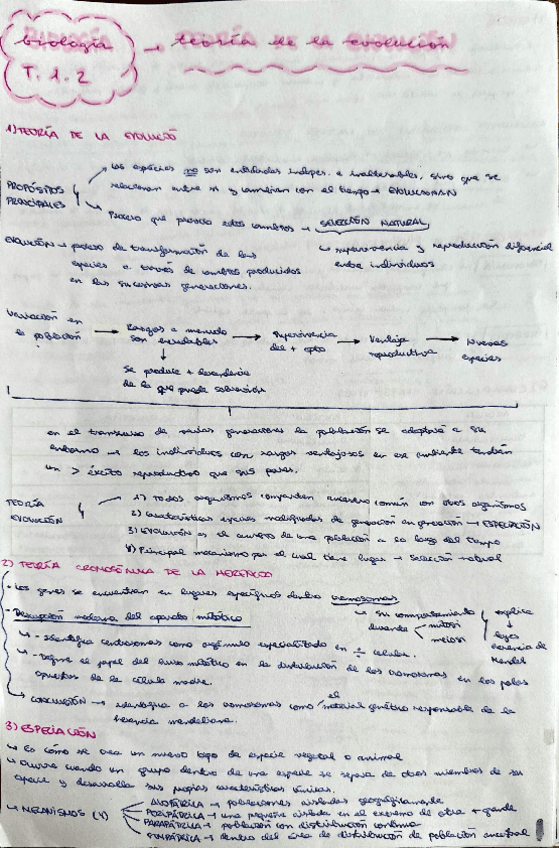 biología → teoría de la evolución
T. 1. 2
1) TEORÍA DE LA EVOLUCIÓ
PROPÓSITOS PRINCIPALES
Las especies no son entidades indep. e inalterables, sino que se
relacionan entre sí y cambian con el tiempo → EVOLUCIONAN
Proceso que provoca estos cambios → SELECCIÓN NATURAL
↳ supervivencia y reproducción diferencial
entre individuos
EVOLUCIÓN → proceso de transformación de las
especies a través de cambios producidos
en las sucesivas generaciones.
Variación en la población → Rasgos a menudo son heredables → Supervivencia del + apto → Ventaja reproductiva → Nuevas especies
↓
Se produce + descendencia
de la que puede sobrevivir
en el transcurso de varias generaciones la población se adaptará a su
entorno → los individuos con rasgos ventajosos en ese ambiente tendrán
un > éxito reproductivo que sus pares.
TEORÍA EVOLUCIÓN
1) Todos organismos comparten ancestro común con otros organismos
2) Características espcures modificadas de generación en generación → ESPECIACIÓN
3) EVOLUCIÓN es el de una población a lo largo del tiempo
4) Principal mecanismo por el cual tiene lugar → Selección natural
2) TEORÍA CROMOSÓMICA DE LA HERENCIA
- Los genes se encuentran en lugares específicos dentro cromosomas
↳ su comportamiento durante mitosis meiosis explica ↓ leyes herencia de Mendel
- Descripción moderna del aparato mitótico
↳ - Identifica centrosomas como orgánulo especializado en ÷ celular.
↳ - Define el papel del huso mitótico en la distribución de los cromosomas en los polos
opuestos de la célula madre.
↳ CONCLUSIÓN → identifica a los cromosomas como el material genético responsable de la
herencia mendeliana.
3) ESPECIACIÓN
↳ Es cómo se crea un nuevo tipo de especie vegetal o animal
↳ Ocurre cuando un grupo dentro de una especie se separa de otros miembros de su
especie y desarrolla sus propias características únicas.
↳ MECANISMOS (4)
ALOPÁTRICA → poblaciones aisladas geográficamente
PERIPÁTRICA → una pequeña aislada en el extremo de otra + grande
PARAPÁTRICA → población con distribución continua
SIMPÁTRICA → dentro del área de distribución de población ancestral